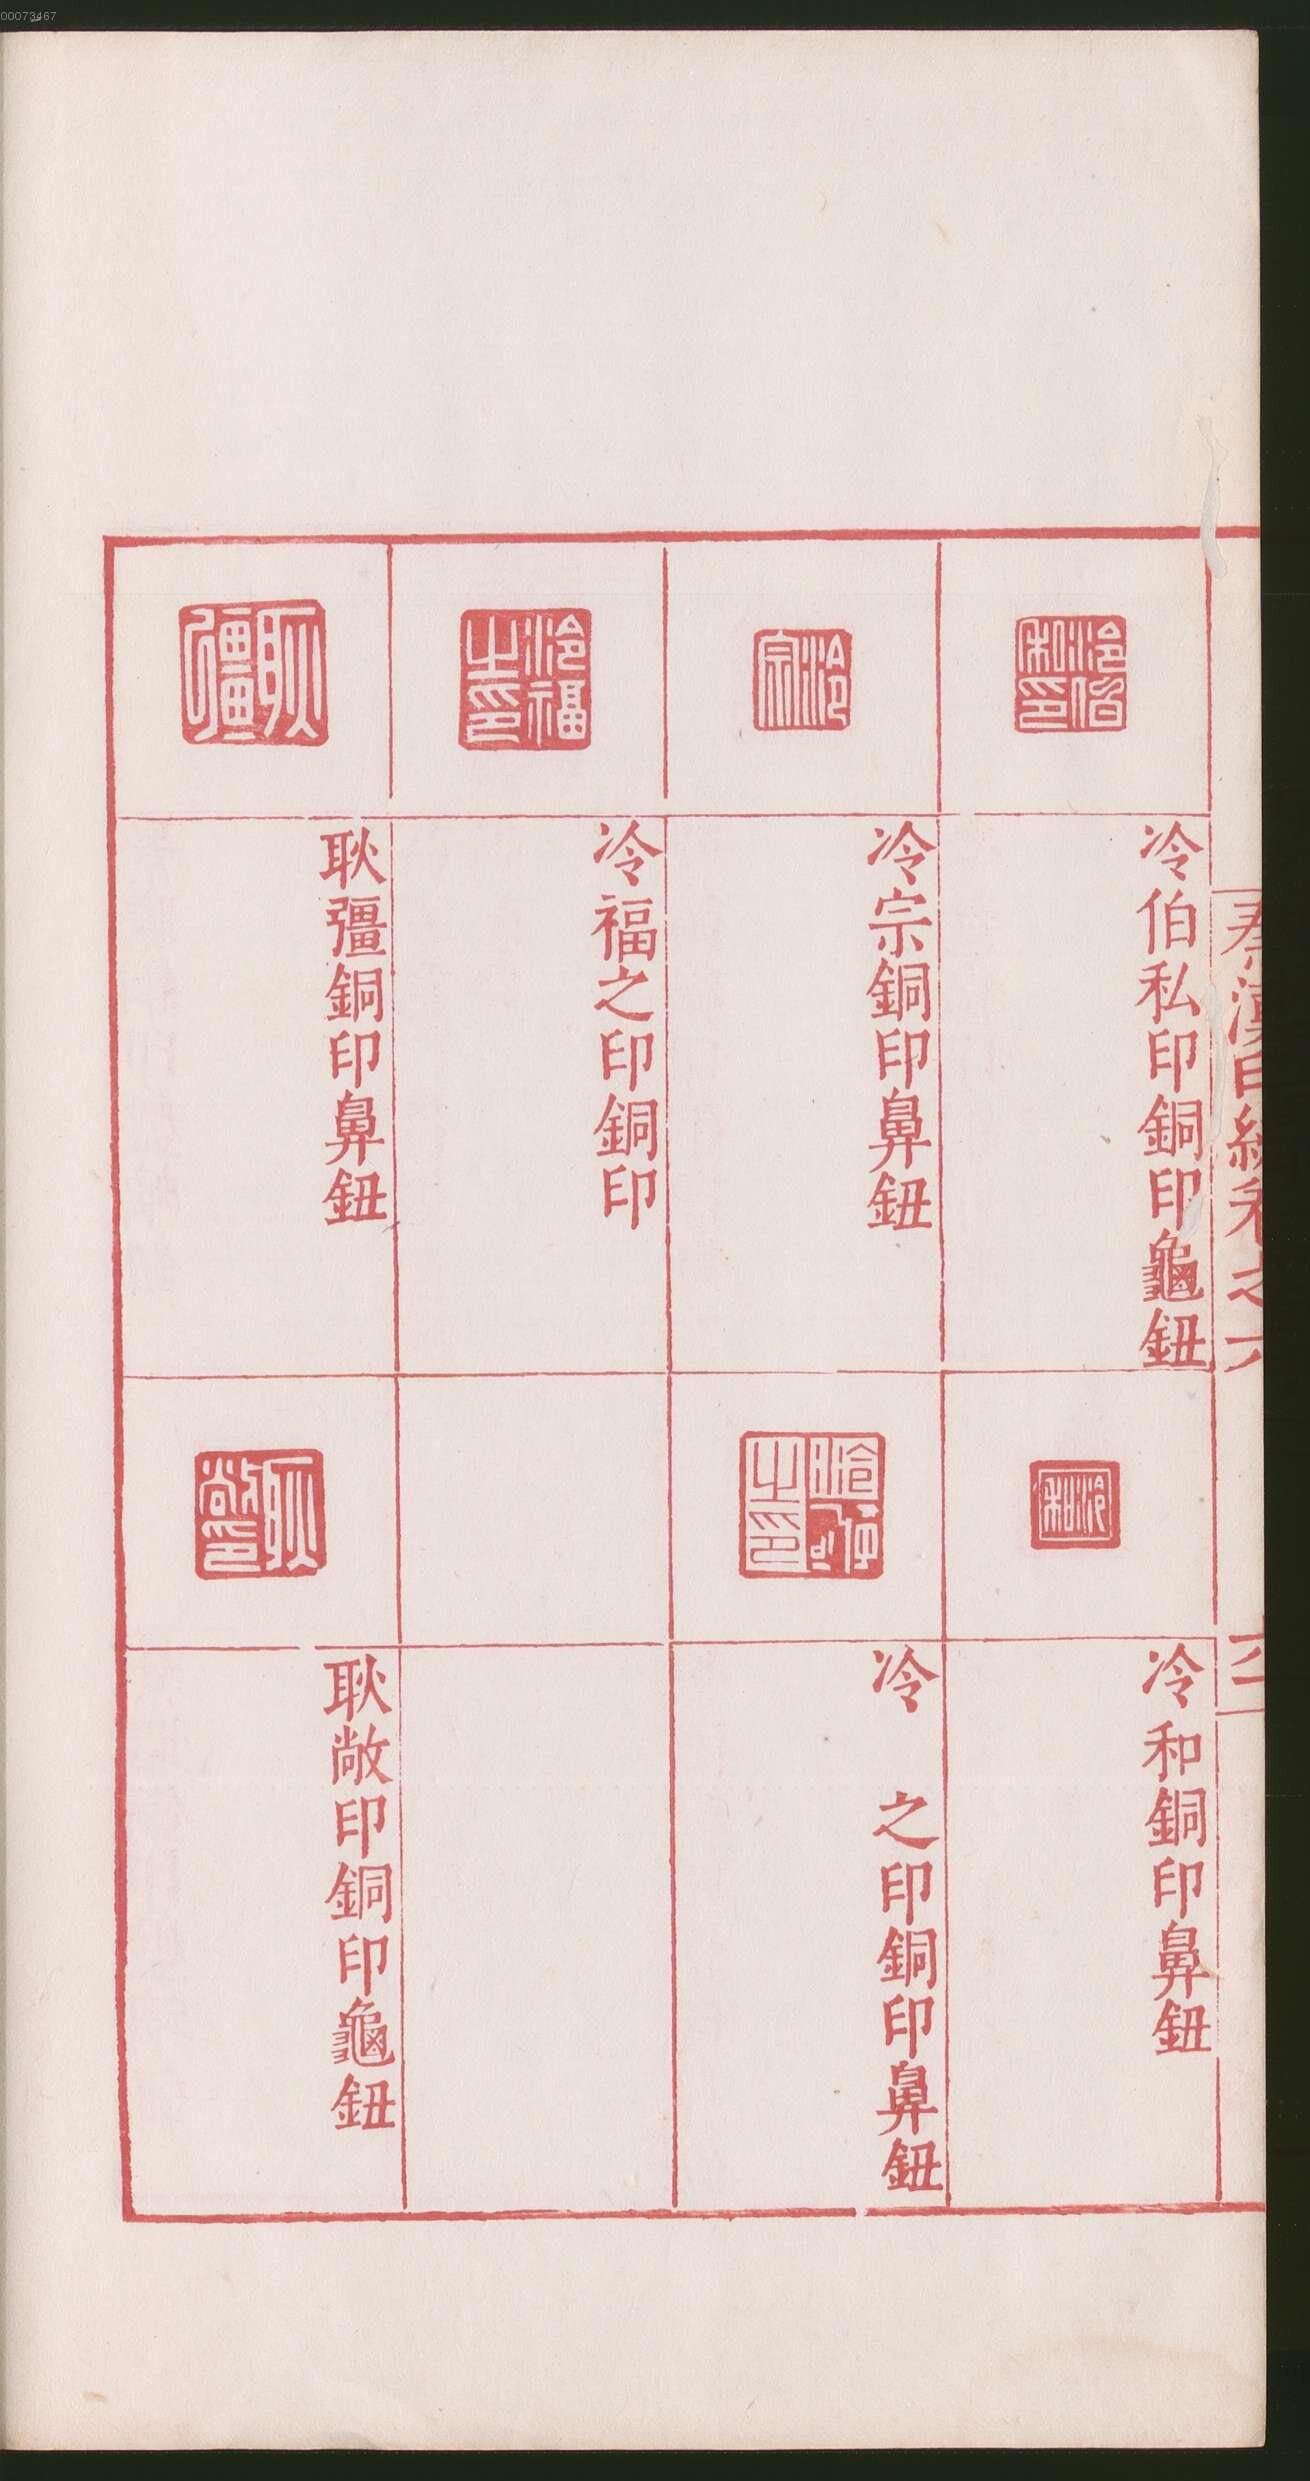 00073467
秦漢印統卷之六
冷伯私印銅印龜鈕
冷和銅印鼻鈕
冷宗銅印鼻鈕
冷 之印銅印鼻鈕
冷福之印銅印
耿彊銅印鼻鈕
耿敞印銅印龜鈕